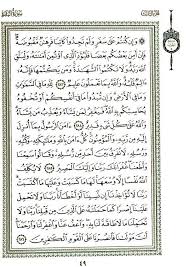 الجزء الثالث
سورة البقرة
۞ وَإِن كُنتُمْ عَلَىٰ سَفَرٍ وَلَمْ تَجِدُوا۟ كَاتِبًا فَرِهَـٰنٌ مَّقْبُوضَةٌ
فَإِنْ أَمِنَ بَعْضُكُم بَعْضًا فَلْيُؤَدِّ ٱلَّذِى ٱؤْتُمِنَ أَمَـٰنَتَهُۥ وَلْيَتَّقِ
ٱللَّهَ رَبَّهُۥ وَلَا تَكْتُمُوا۟ ٱلشَّهَـٰدَةَ وَمَن يَكْتُمْهَا فَإِنَّهُۥٓ
ءَاثِمٌ قَلْبُهُۥ وَٱللَّهُ بِمَا تَعْمَلُونَ عَلِيمٌ ٢٨٣ لِّلَّهِ مَا فِى ٱلسَّمَـٰوَٰتِ
وَمَا فِى ٱلْأَرْضِ وَإِن تُبْدُوا۟ مَا فِىٓ أَنفُسِكُمْ أَوْ تُخْفُوهُ
يُحَاسِبْكُم بِهِ ٱللَّهُ فَيَغْفِرُ لِمَن يَشَآءُ وَيُعَذِّبُ مَن يَشَآءُ
وَٱللَّهُ عَلَىٰ كُلِّ شَىْءٍ قَدِيرٌ ٢٨٤ ءَامَنَ ٱلرَّسُولُ بِمَآ أُنزِلَ إِلَيْهِ
مِن رَّبِّهِۦ وَٱلْمُؤْمِنُونَ كُلٌّ ءَامَنَ بِٱللَّهِ وَمَلَـٰٓئِكَتِهِۦ وَكُتُبِهِۦ
وَرُسُلِهِۦ لَا نُفَرِّقُ بَيْنَ أَحَدٍ مِّن رُّسُلِهِۦ وَقَالُوا۟ سَمِعْنَا
وَأَطَعْنَا غُفْرَانَكَ رَبَّنَا وَإِلَيْكَ ٱلْمَصِيرُ ٢٨٥ لَا يُكَلِّفُ
ٱللَّهُ نَفْسًا إِلَّا وُسْعَهَا لَهَا مَا كَسَبَتْ وَعَلَيْهَا مَا ٱكْتَسَبَتْ
رَبَّنَا لَا تُؤَاخِذْنَآ إِن نَّسِينَآ أَوْ أَخْطَأْنَا رَبَّنَا وَلَا تَحْمِلْ
عَلَيْنَآ إِصْرًا كَمَا حَمَلْتَهُۥ عَلَى ٱلَّذِينَ مِن قَبْلِنَا رَبَّنَا وَلَا
تُحَمِّلْنَا مَا لَا طَاقَةَ لَنَا بِهِۦ وَٱعْفُ عَنَّا وَٱغْفِرْ لَنَا وَٱرْحَمْنَآ
أَنتَ مَوْلَىٰنَا فَٱنصُرْنَا عَلَى ٱلْقَوْمِ ٱلْكَـٰفِرِينَ ٢٨٦
٤٩